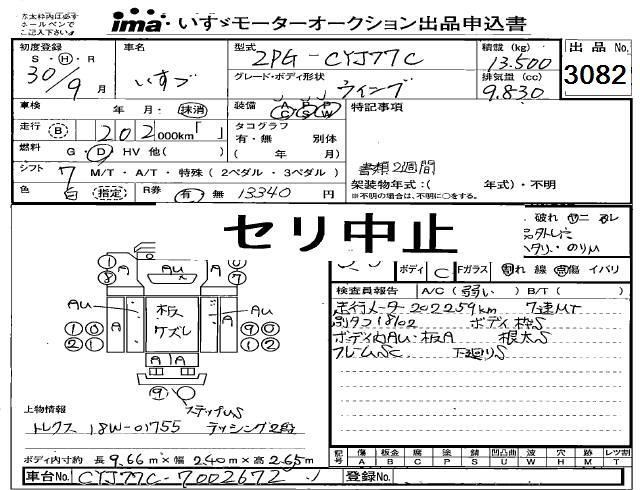 太太枠内は必ず
ホールペンで
ご記入下さい。
ima いすゞモーターオークション出品申込書
初度登録 車名 型式 積載(kg) 出品No.
S・H・R 2PG-CYJ77C 13.500
30/9月 いすゞ グレード・ボディ形状 排気量(cc) 3082
ウイング 9.830
車検 年 月・抹消 装備 A P W C S W 特記事項
走行 B 202000km「 」 タコグラフ
有・無 別体
燃料 G・D HV 他( ) ( 年 月)
シフト 7 M/T・A/T・特殊(2ペダル・3ペダル) 書類2週間
色 白 (指定) R券 有・無 13340円 架装物年式:( 年式)・不明
※不明の場合は、不明に○をする。
セリ中止
破れ ヤニ コレ
ボディ C Fガラス 割れ 線 点傷 イパリ
検査員報告 A/C(弱い) B/T( )
走行メーター202259km 7速MT
別タコ18/02 ボディ枠S
ボディ内AU・板A 根太S
フレームSC 下廻りS
A AU A
AU AU
A 板ケズレ A
A A
ステップUS
上物情報
トレクス 18W-01755 ラッシング2段
ボディ内寸約 長9.66m×幅2.40m×高2.65m
記号 傷A 板金B 腐C 塗P 錆S 凹U 凹凸曲W 波W 穴H 所M レツ割T
車台No. CYJ77C-7002672 登録No.